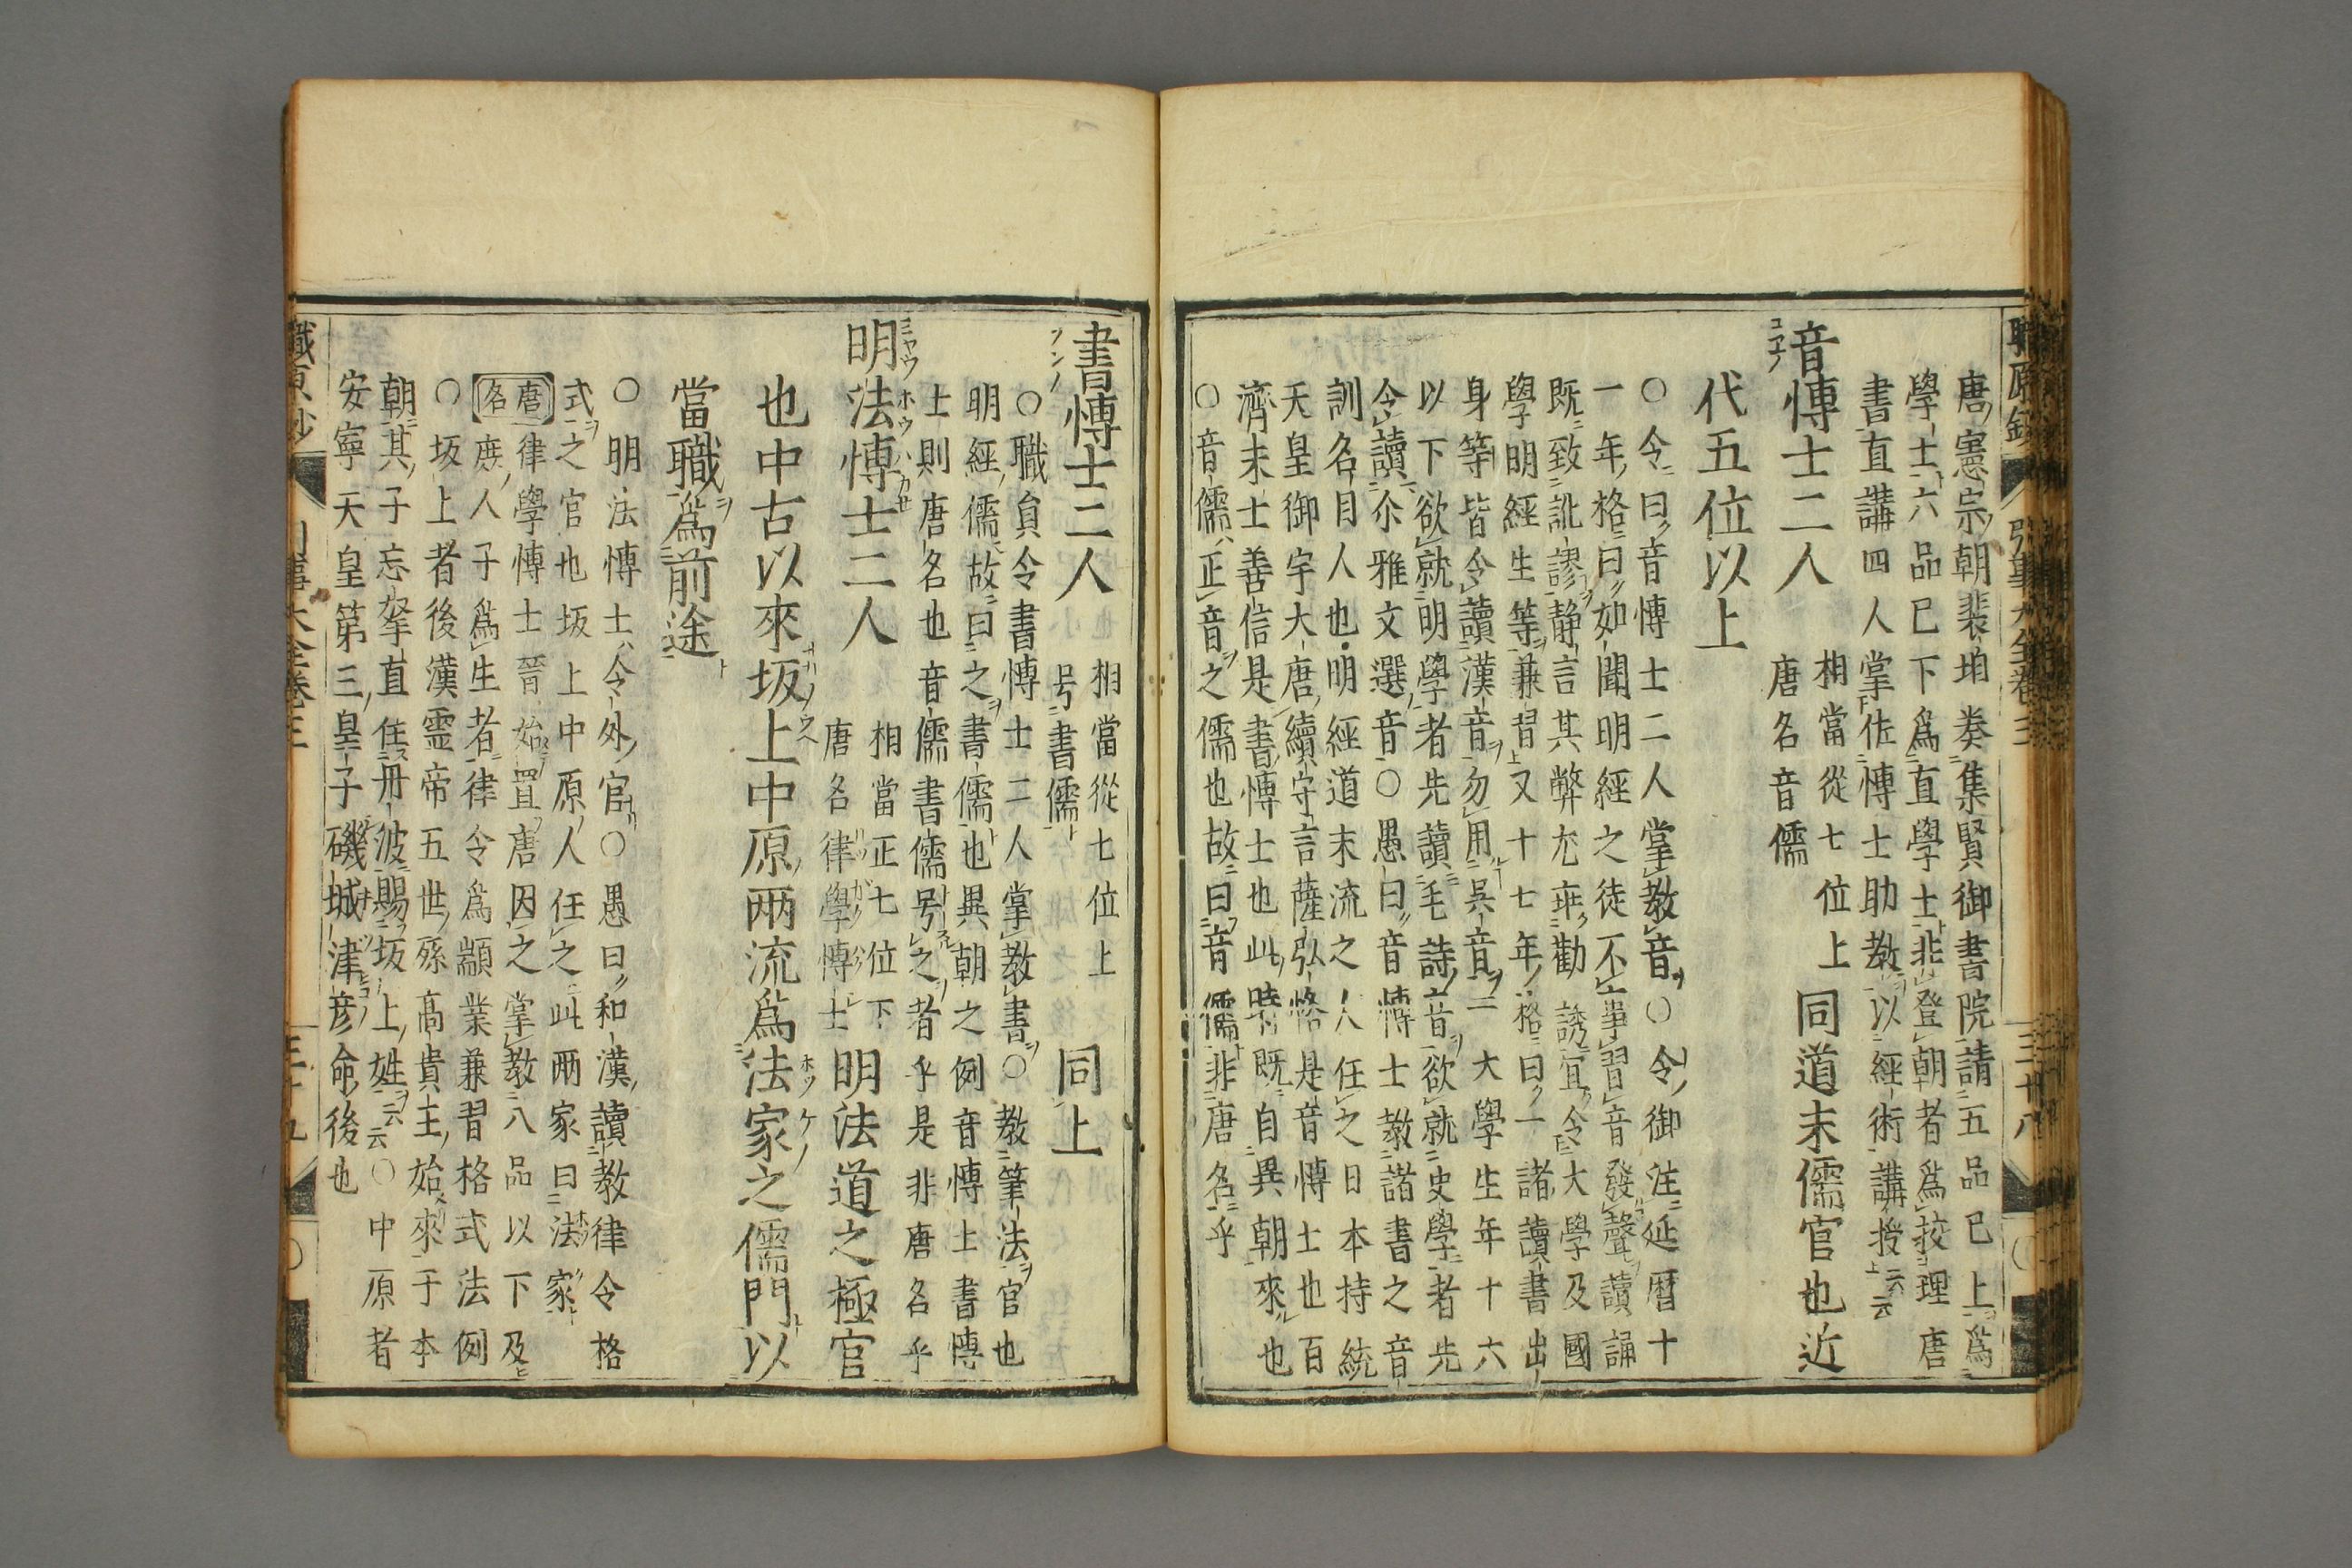 職原鈔 引事大全卷三 三十八
唐憲宗朝裴垍奏集賢御書院請五品已上爲
學士六品已下爲直學士非登朝者爲挍理唐
書直講四人掌佐博士助教以經術講授云云
音博士二人 相當從七位上 唐名音儒 同道末儒官也近
代五位以上
○令曰音博士二人掌教音○令御注延暦十
一年格曰如聞明經之徒不事習音發聲讀誦
既致訛謬静言其弊尤乖勸誘宜令大學及國
學明經生等兼習又十七年格曰一諸讀書出
身等皆令讀漢音勿用呉音二大學生年十六
以下欲就明學者先讀毛詩音欲就史學者先
令讀尒雅文選音○愚曰音博士教諸書之音
訓名目人也明經道末流之人任之日本持統
天皇御宇大唐續守言薩弘恪是音博士也百
濟末士善信是書博士也此時既自異朝來也
○音儒正音之儒也故曰音儒非唐名乎
書博士二人 相當從七位上 号書儒 同上
○職貟令書博士二人掌教書○教筆法官也
明經儒故曰之書儒也異朝之例音博士書博
士則唐名也音儒書儒号之者乎是非唐名乎
明法博士二人 相當正七位下 唐名律學博士 明法道之極官
也中古以來坂上中原兩流爲法家之儒門以
當職爲前途
○明法博士令外官○愚曰和漢讀教律令格
式之官也坂上中原人任之此兩家曰法家
唐名 律學博士晉始置唐因之掌教八品以下及
庻人子爲生者律令爲顓業兼習格式法例
○坂上者後漢霊帝五世孫高貴主始來于本
朝其子忘拏直住丹波賜坂上姓云云○中原者
安寧天皇第三皇子磯城津彦命後也
職原鈔 引事大全卷三 三十九